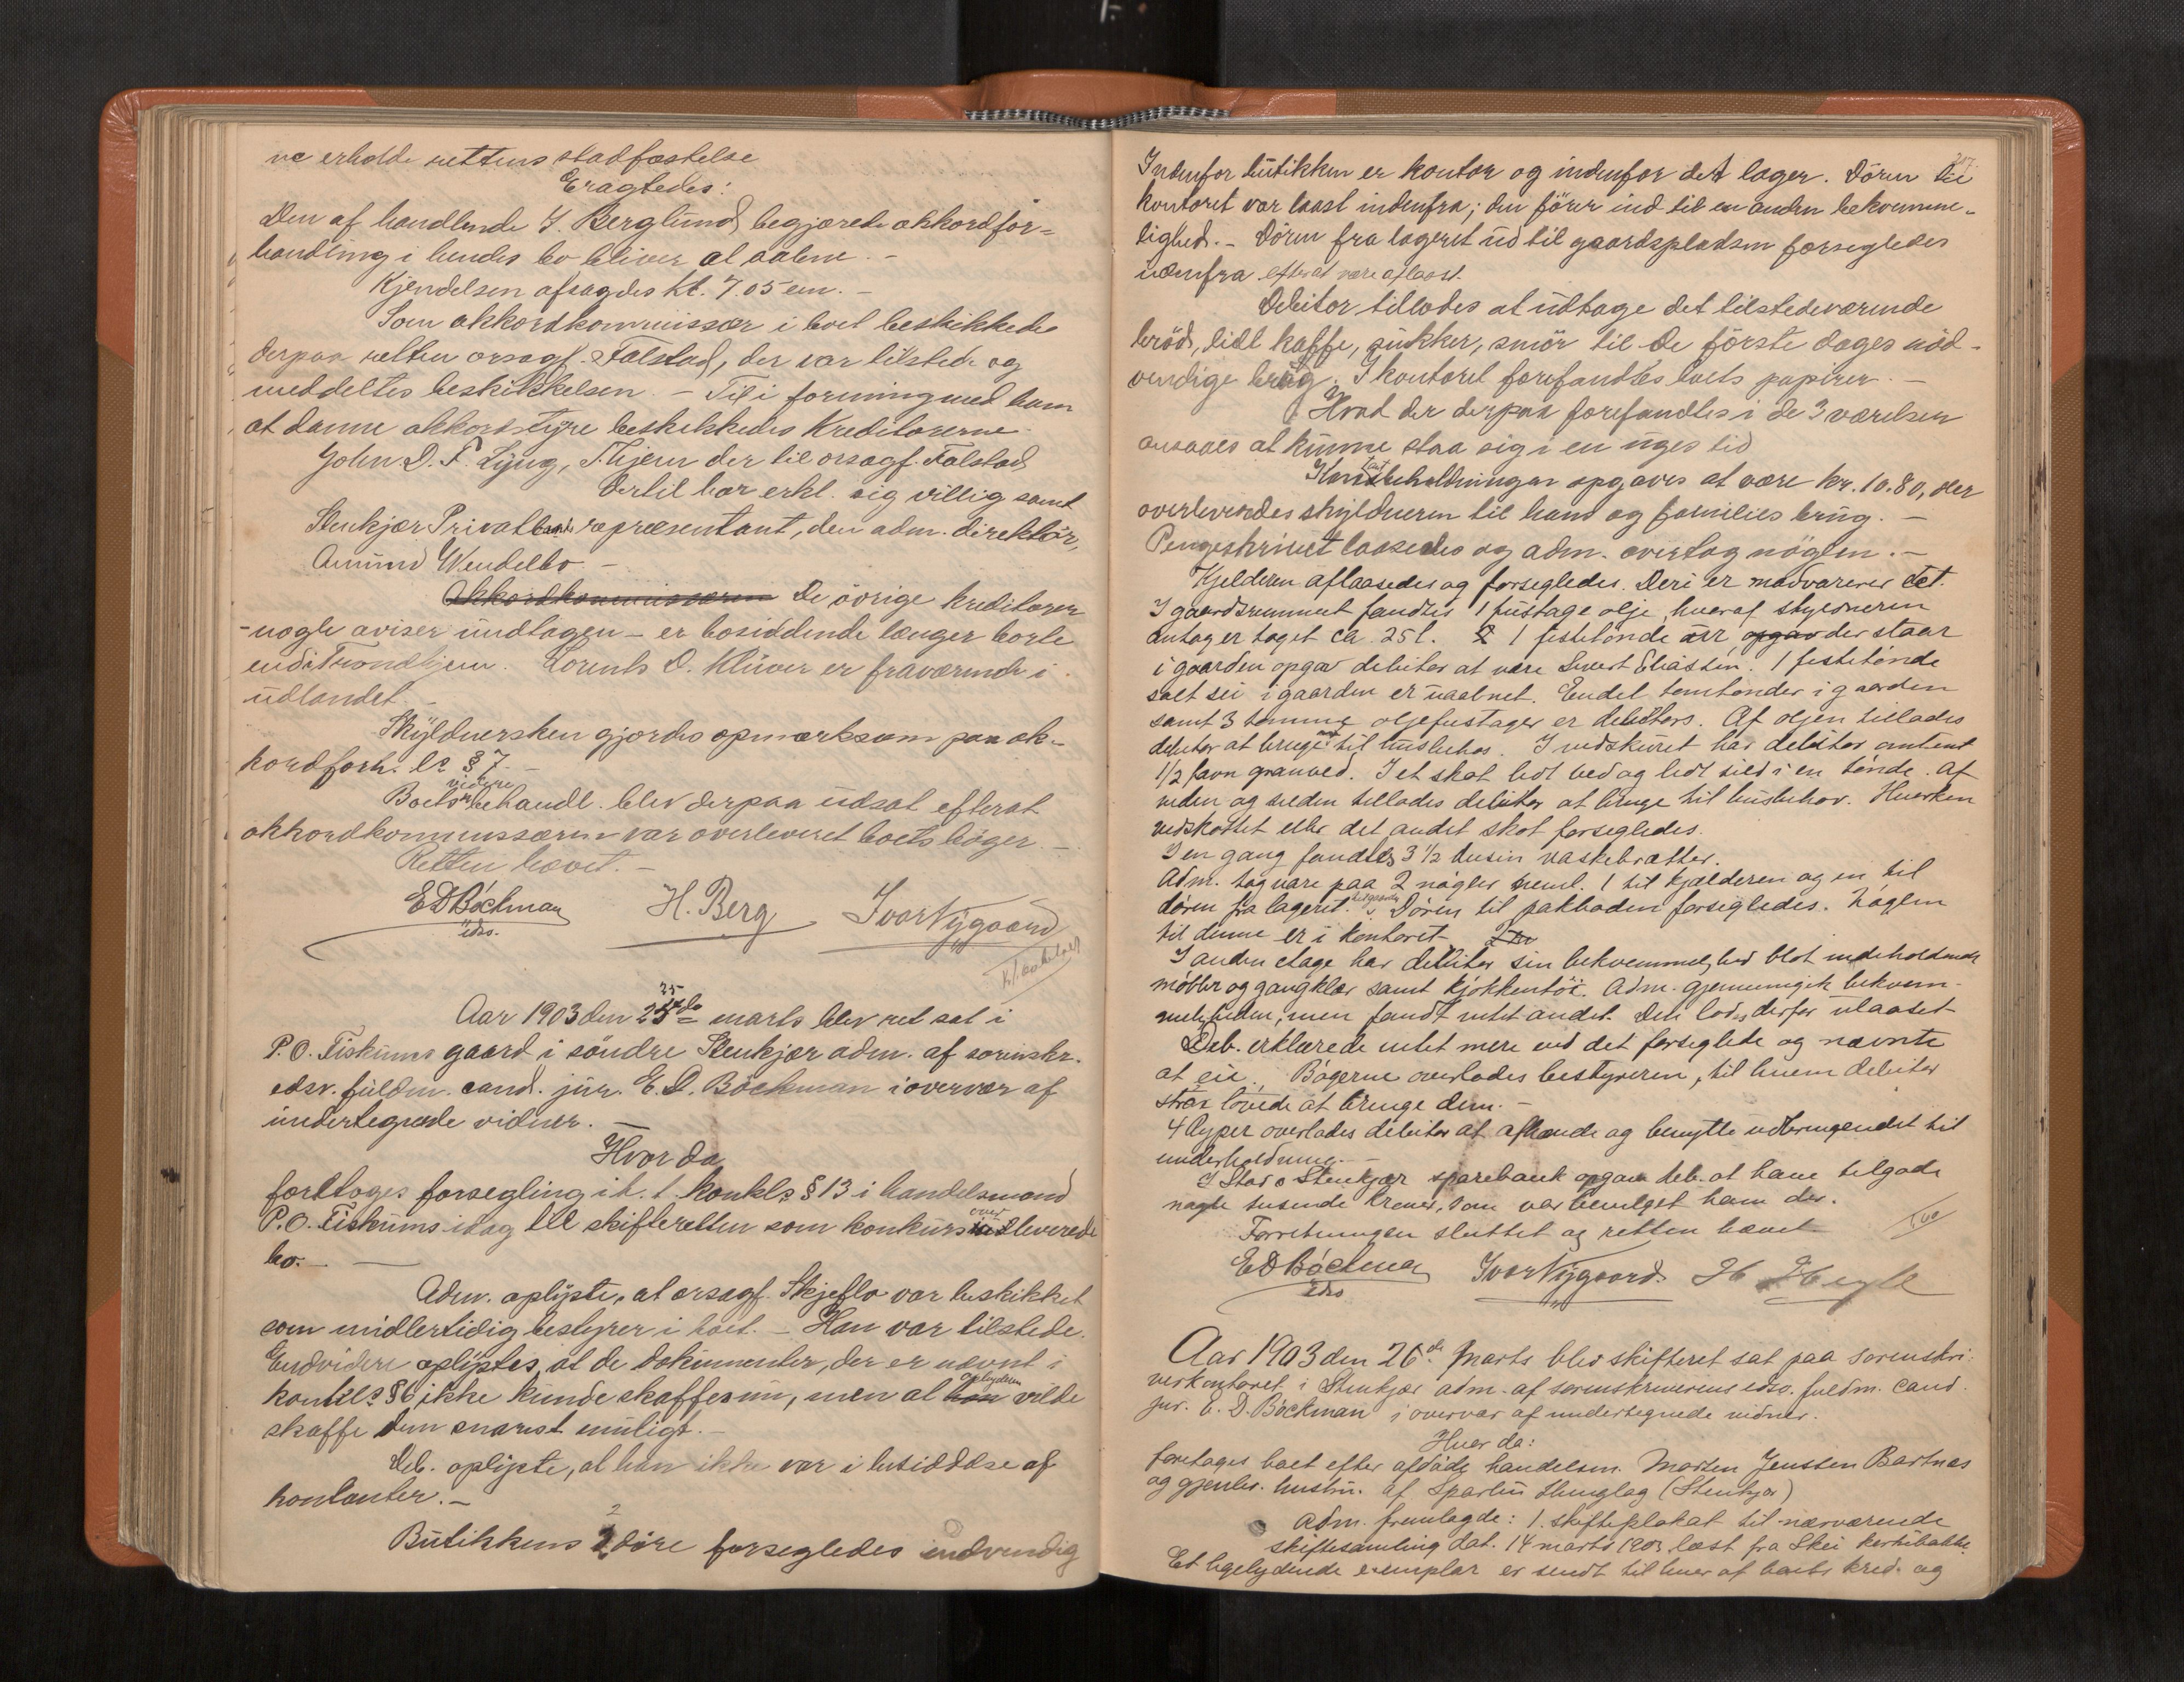 ne erholde rettens stadfæstelse
Eragtedes:
Den af handlende J. Berglund begjærede akkordfor=
handling i hendes bo bliver at aabne. -
Kjendelsen afsagdes kl. 7.05 em. -
Som akkordkommissær i boet beskikkede
derpaa retten orsagf. Falstad, der var tilstede og
meddeltes beskikkelsen. - Til i forening med ham
at danne akkordstyre beskikkedes kreditorerne
John D. F. Lyng, Thjem der til orsagf. Falstad
dertil har erkl. sig villig samt
Stenkjær Privatbanks repræsentant, den adm. direktör,
Amund Wendelbo -
Akkordkommissæren De övrige kreditorer
- nogle aviser undtagen - er bosiddende længer borte
end i Trondhjem. Lorents D. Klüver er fraværende i
udlandet. -
Skyldnersken gjordes opmærksom paa ak-
kordforh. ls § 7. -
Boets videre behandl. blev derpaa udsat efterat
akkordkommissæren var overleveret boets böger. -
Retten hævet. -
E D Böckman H. Berg Ivar Nygaard
edsv.
Aar 1903 den 25de marts blev ret sat i
P. O. Fiskums gaard i söndre Stenkjær adm. af sorenskr.
edsv. fuldm. cand. jur. E. D. Böckman i overvær af
undertegnede vidner. -
Hvorda
foretoges forsegling i h. t. konkls § 13 i handelsmand
P. O. Fiskums idag til skifteretten som konkurs overleverede
bo. -
Adm. oplyste, at orsagf. Skjeflo var beskikket
som midlertidig bestyrer i boet. - Han var tilstede.
Endvidere oplystes, at de dokumenter, der er nævnt i
konkls § 6, ikke kunde skaffes nu, men at han debitoren vilde
skaffe dem snarest muligt. -
Deb. oplyste, at han ikke var i besiddelse af
kontanter. -
Butikkens 2 döre forsegledes indvendig
Indenfor butikken er kontor og indenfor det lager. Dören til
kontoret var laast indenfra; den förer ind til en anden bekvemme-
lighed. - Dören fra lageret ud til gaardspladsen forsegledes
udenfra efterat være aflaast.
Debitor tillodes at udtage det tilstedeværende
bröd, lidt kaffe, sukker, smör til de förste dages nöd-
vendige brug. I kontoret forefandtes boets papirer. -
Hvad der derpaa forefandtes i de 3 værelser
ansaaes at kunne staa sig i en uges tid
Kontantbeholdningen opgaves at være kr. 10.80, der
overlevertes skyldneren til hans og families brug. -
Pengeskrinet laasedes og adm. overtog nöglen. -
Kjelderen aflaasedes og forsegledes. Deri er madvarerer
I gaardsrummet fandtes 1 fustage olje, hvoraf skyldneren
antog er taget ca 25 l. 1 fisketönde der staar
i gaarden opgav debitor at være Sivert Eliassen. 1 fisketönde
salt sei i gaarden er uaabnet. Endel tomtönder i gaarden
samt 3 tomme oljefustager er debitors. Af oljen tillodes
debitor at bruge til husbehov. I vedskuret har debitor omtrent
1/2 favn granved. I et skot lidt ved og lidt sild i en tönde. Af
veden og silden tillodes debitor at bruge til husbehov. Hverken
vedskottet eller det andet skot forsegledes.
I en gang fandtes 3 1/2 dusin vaskebrætter.
Adm. tog vare paa 2 nögler neml. 1 til kjælderen og en til
dören fra lageret. Dören til pakboden forsegledes. Nöglen
til denne er i kontoret.
I anden etage har debitor sin bekvemmelighed blot indeholdende
möbler og gangklær samt kjökkentöi. Adm. gjennemgik bekvem-
meligheden, men fandt intet andet. Den lodes derfor ulaaset.
Deb. erklærede intet mere end det forseglede og nævnte
at eie. Bögerne overlodes bestyreren, til hvem debitor
strax lovede at bringe dem. -
4 lyper overlodes debitor at afhænde og benytte udbringendet til
underholdning. -
I Stod o Stenkjær sparebank opgav deb. at have tilgode
nogle tusende kroner, som var bevilget ham der.
Forretningen sluttet og retten hævet
E D Böckman Ivar Nygaard. H
edsv
Aar 1903 den 26de Marts blev skifteret sat paa sorenskri-
verkontoret i Stenkjær adm. af sorenskriverens edsv. fuldm. cand.
jur. E. D. Böckman i overvær af undertegnede vidner.
Hvor da:
foretoges boet efter afdöde handelsm. Morten Jenssen Bartnes
og gjenlev. hustru af Sparbu thinglag (Stenkjær)
Adm. fremlagde: 1. skifteplakat til nærværende
skiftesamling dat. 14 marts 1903 læst fra Skei kirkebakke.
Et ligelydende exemplar er sendt til hver af boets kred. og